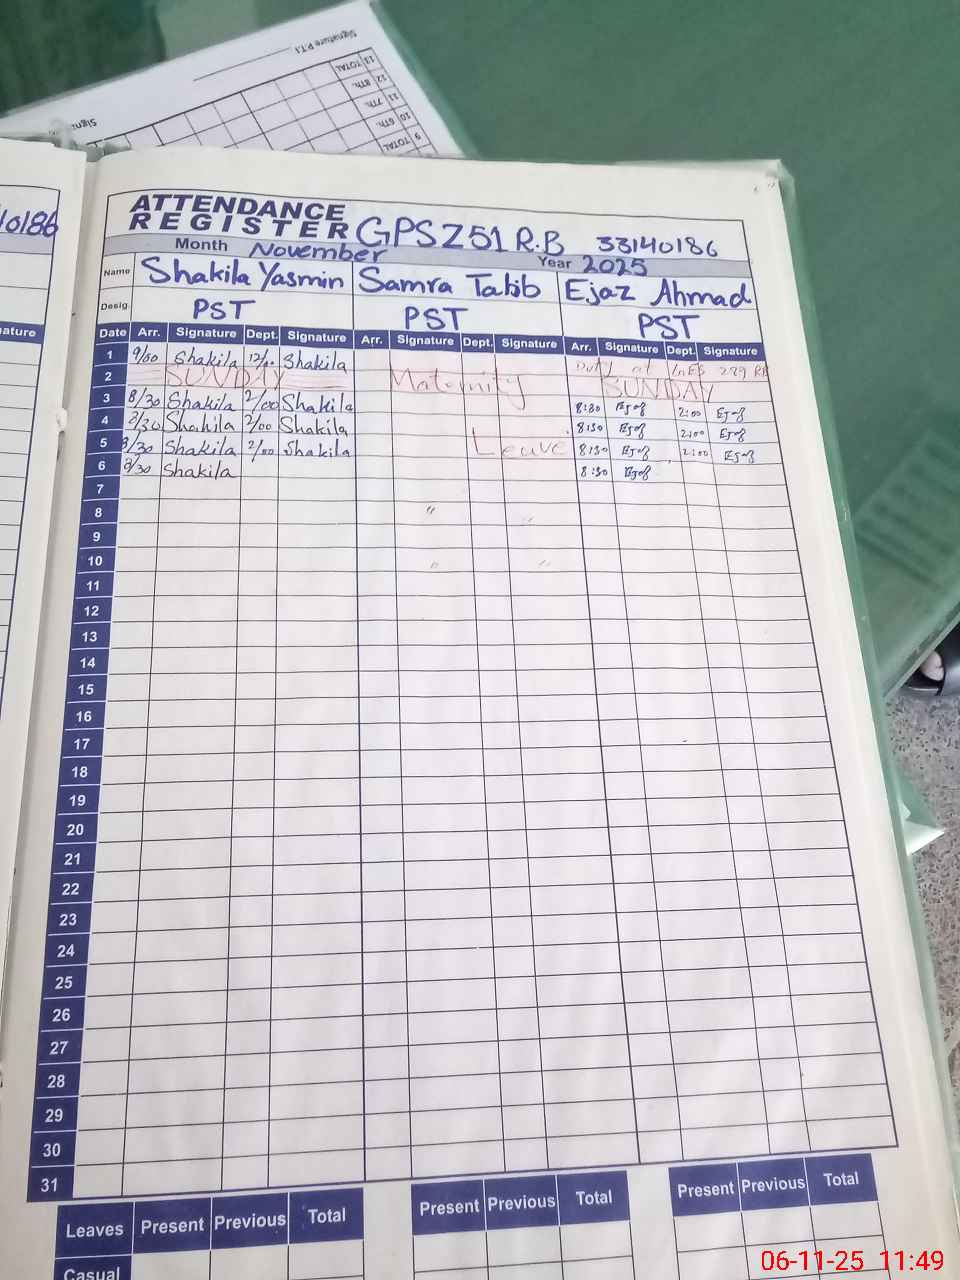 Signature P.T.I
13 TOTAL
12 8TH.
11 7TH.
10 6TH.
9 TOTAL
10186
ature
ATTENDANCE
REGISTER GPS 251 R.B 33140186
Month November Year 2025
Name Shakila Yasmin Samra Talib Ejaz Ahmad
Desig. PST PST PST
Date Arr. Signature Dept. Signature Arr. Signature Dept. Signature Arr. Signature Dept. Signature
1 9/00 Shakila 12/00 Shakila Duty at 229 RB
2 SUNDAY Maternity SUNDAY
3 8/30 Shakila 2/00 Shakila 8:30 Ejaz 2:00 Ejaz
4 8/30 Shakila 2/00 Shakila 8:30 Ejaz 2:00 Ejaz
5 8/30 Shakila 2/00 Shakila Leave 8:30 Ejaz 2:00 Ejaz
6 8/30 Shakila 8:30 Ejaz
7
8 " "
9
10 " "
11
12
13
14
15
16
17
18
19
20
21
22
23
24
25
26
27
28
29
30
31
Leaves Present Previous Total Present Previous Total Present Previous Total
Casual
06-11-25 11:49